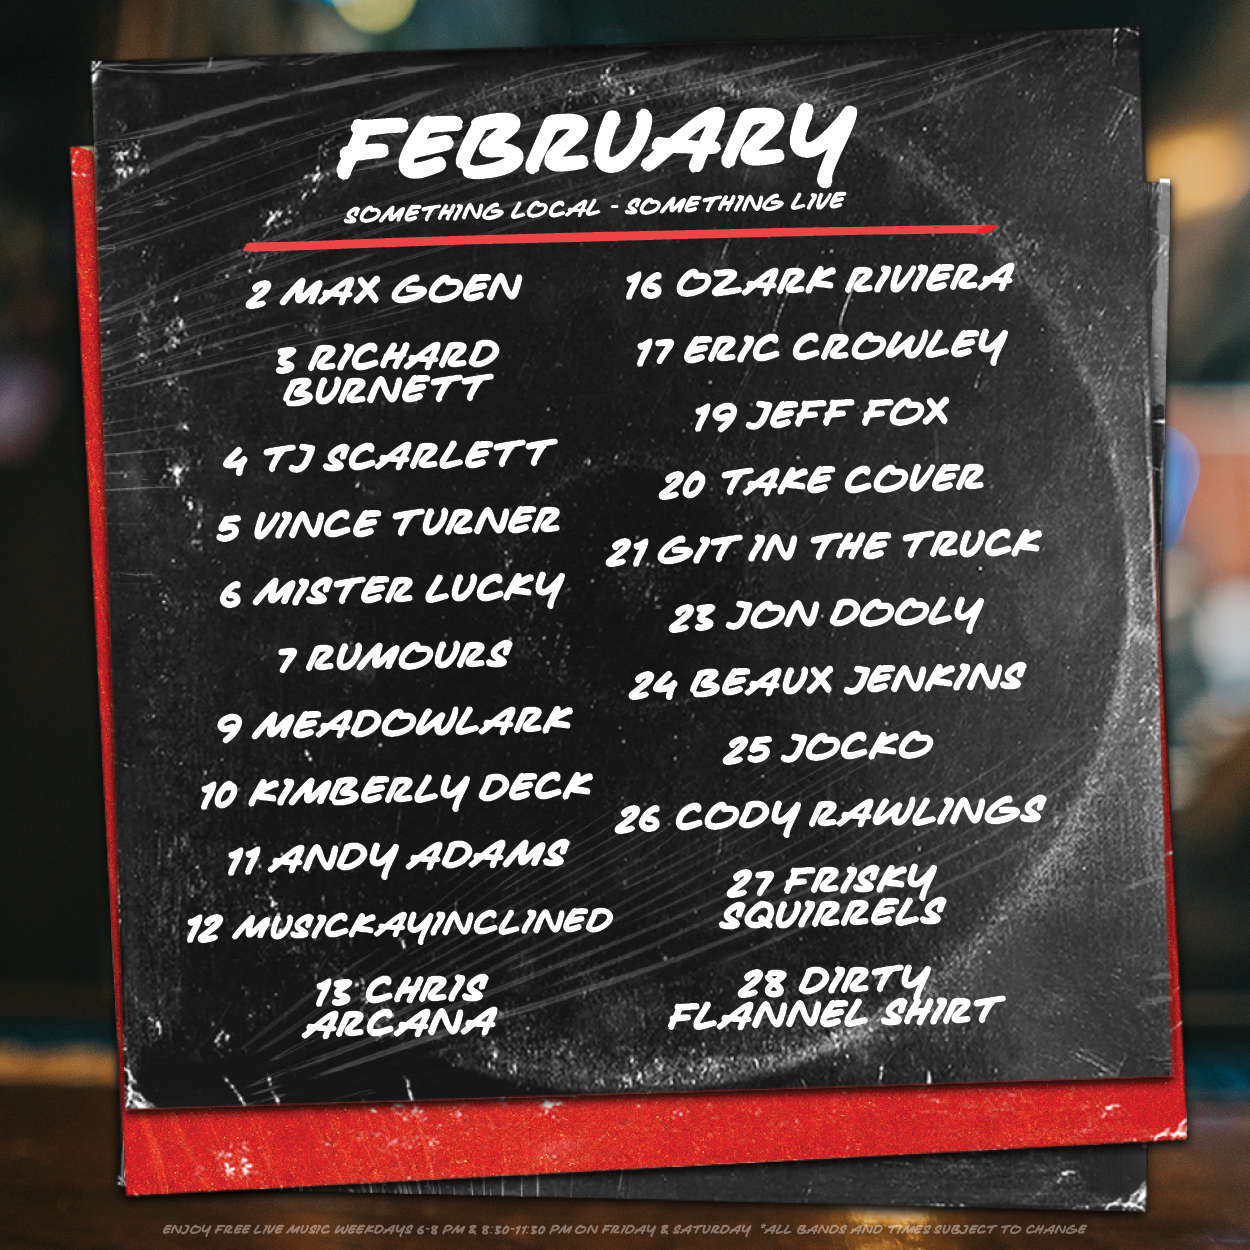 FEBRUARY
SOMETHING LOCAL - SOMETHING LIVE
2 MAX GOEN
3 RICHARD
BURNETT
4 TJ SCARLETT
5 VINCE TURNER
6 MISTER LUCKY
7 RUMOURS
9 MEADOWLARK
10 KIMBERLY DECK
11 ANDY ADAMS
12 MUSICKAYINCLINED
13 CHRIS
ARCANA
16 OZARK RIVIERA
17 ERIC CROWLEY
19 JEFF FOX
20 TAKE COVER
21 GIT IN THE TRUCK
23 JON DOOLY
24 BEAUX JENKINS
25 JOCKO
26 CODY RAWLINGS
27 FRISKY
SQUIRRELS
28 DIRTY
FLANNEL SHIRT
ENJOY FREE LIVE MUSIC WEEKDAYS 6-8 PM & 8:30-11:30 PM ON FRIDAY & SATURDAY *ALL BANDS AND TIMES SUBJECT TO CHANGE